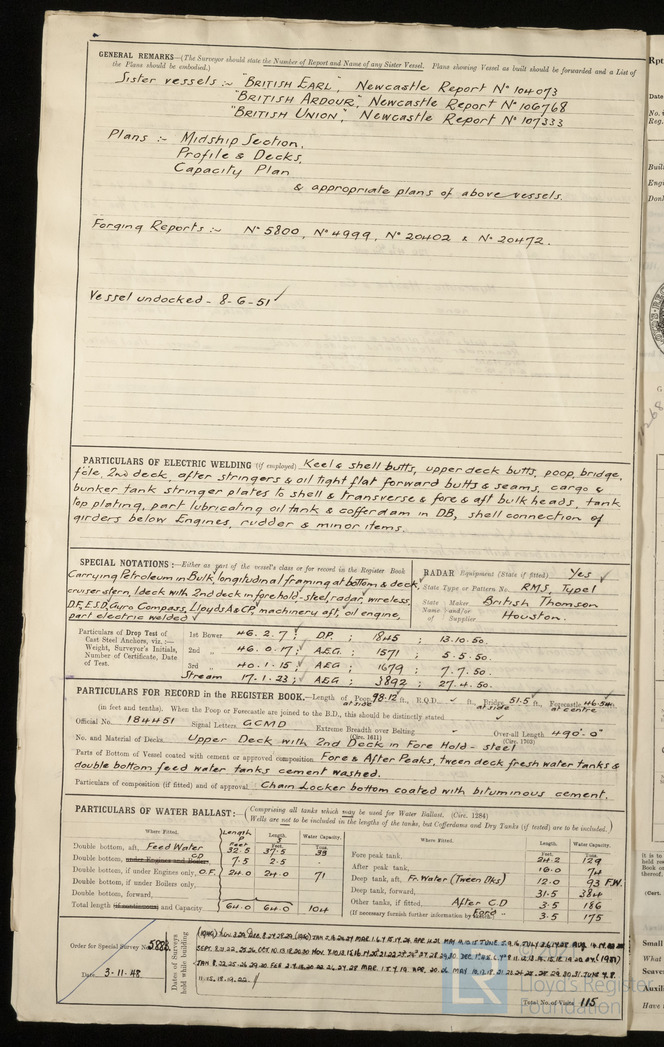 GENERAL REMARKS—(The Surveyor should state the Number of Report and Name of any Sister Vessel. Plans showing Vessel as built should be forwarded and a List of
the Plans should be embodied.)
Sister vessels :- "BRITISH EARL", Newcastle Report No 104073
"BRITISH ARDOUR", Newcastle Report No 106768
"BRITISH UNION", Newcastle Report No 107333
Plans :- Midship Section,
Profile & Decks,
Capacity Plan
& appropriate plans of above vessels.
Forging Reports :- No 5800, No 4999, No 20402 & No 20472.
Vessel undocked - 8-6-51 ✓
PARTICULARS OF ELECTRIC WELDING (if employed) Keel & shell butts, upper deck butts, poop, bridge,
f'cle, 2nd deck, after stringers & oil tight flat forward butts & seams, cargo &
bunker tank stringer plates to shell & transverse & fore & aft bulkheads, tank
top plating, part lubricating oil tank & cofferdam in DB, shell connection of
girders below Engines, rudder & minor items.
SPECIAL NOTATIONS:—Either as part of the vessel's class or for record in the Register Book
Carrying Petroleum in Bulk, longitudinal framing at bottom & deck,
cruiser stern, 1 deck with 2nd deck in forehold-steel, radar, wireless,
D.F., E.S.D, Gyro Compass, Lloyds A & CP, machinery aft, oil engine,
part electric welded ✓
RADAR Equipment (State if fitted) Yes ✓
State Type or Pattern No. RMS, Type 1
State Maker Name and/or of Supplier British Thomson
Houston.
Particulars of Drop Test of Cast Steel Anchors, viz.:— Weight, Surveyor's Initials, Number of Certificate, Date of Test.
1st Bower 46.2.7 ; D.P. ; 1845 ; 13.10.50.
2nd „ 46.0.17 ; A.E.G. ; 1571 ; 5.5.50.
3rd „ 40.1.15 ; A.E.G ; 1679 ; 7.7.50.
Stream 17.1.23 ; A.E.G ; 3892 ; 27.4.50.
PARTICULARS FOR RECORD in the REGISTER BOOK.—Length of Poop 98.12 ft., R.Q.D. ✓ ft., Bridge 51.5 ft., Forecastle 46.54 ft.
at side at side at centre
(in feet and tenths). When the Poop or Forecastle are joined to the B.D., this should be distinctly stated ✓
Official No. 184451 Signal Letters GCMD Extreme Breadth over Belting (Circ. 1611) ✓ Over-all Length (Circ. 1703) 490'-0"
No. and Material of Decks Upper Deck with 2nd Deck in Fore Hold - steel
Parts of Bottom of Vessel coated with cement or approved composition Fore & After Peaks, tween deck fresh water tanks &
double bottom feed water tanks cement washed.
Particulars of composition (if fitted) and of approval Chain Locker bottom coated with bituminous cement.
PARTICULARS OF WATER BALLAST:— (Comprising all tanks which may be used for Water Ballast. (Circ. 1284)
Wells are not to be included in the lengths of the tanks, but Cofferdams and Dry Tanks (if tested) are to be included.)
Where Fitted. Length P Feet Length. S Feet. Water Capacity. Tons.
Double bottom, aft, Feed Water 32.5 37.5 33
Double bottom, under Engines and Boilers, CD 7.5 2.5 -
Double bottom, if under Engines only, O.F. 24.0 24.0 71
Double bottom, if under Boilers only,
Double bottom, forward,
Total length (if continuous) and Capacity 64.0 64.0 104
Where Fitted. Length. Feet. Water Capacity. Tons.
Fore peak tank, 24.2 129
After peak tank, 16.0 74
Deep tank, aft, Fr. Water (Tween Dks) 12.0 93 F.W.
Deep tank, forward, 31.5 384
Other tanks, if fitted, After C.D 3.5 186
(If necessary furnish further information by sketch.) Ford „ 3.5 175
Order for Special Survey No. 5888
Date 3-11-48
Dates of Surveys held while building
11.15.18.19.22.
Total No. of Visits 115
Lloyd's Register
Foundation